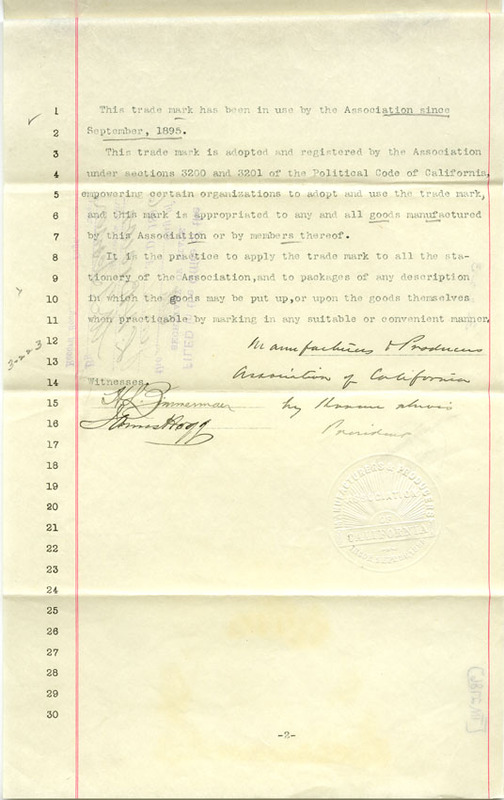 1 This trade mark has been in use by the Association since
2 September, 1895.
3 This trade mark is adopted and registered by the Association
4 under sections 3200 and 3201 of the Political Code of California,
5 empowering certain organizations to adopt and use the trade mark,
6 and this mark is appropriated to any and all goods manufactured
7 by this Association or by members thereof.
8 It is the practice to apply the trade mark to all the sta-
9 tionery of the Association,and to packages of any description
10 in which the goods may be put up,or upon the goods themselves
11 when practicable by marking in any suitable or convenient manner.
12 Manufacturers & Producers
13
14 Witnesses. Association of California
15 by
16 President
17
18
19
20
21
22
23
24
25
26
27
28
29
30
MANUFACTURERS & PRODUCERS
ASSOCIATION
OF
CALIFORNIA
-2-